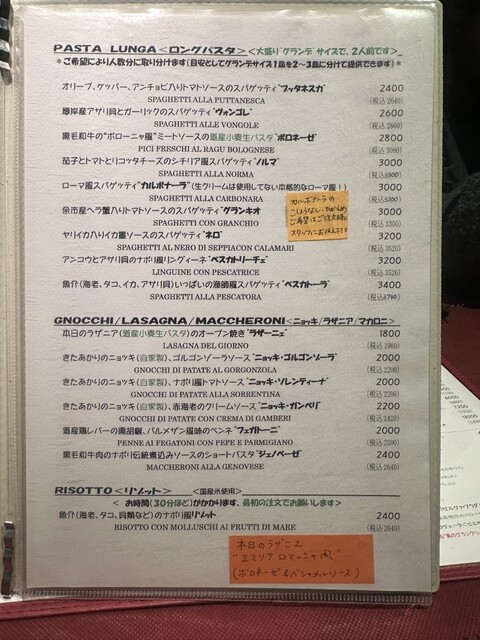 PASTA LUNGA <ロングパスタ> <大盛り"グランデ"サイズで、2人前です>
＊ご希望により人数分に取り分けます(目安としてグランデサイズ1皿を2～3皿に分けて提供できます)＊
オリーブ、ケッパー、アンチョビ入りトマトソースのスパゲッティ"プッタネスカ" 2400
SPAGHETTI ALLA PUTTANESCA (税込2640)
厚岸産アサリ貝とガーリックのスパゲッティ"ヴォンゴレ" 2600
SPAGHETTI ALLE VONGOLE (税込2860)
黒毛和牛の"ボローニャ風"ミートソースの道産小麦生パスタ"ボロネーゼ" 2800
PICI FRESCHI AL RAGU BOLOGNESE (税込3080)
茄子とトマトとリコッタチーズのシチリア風スパゲッティ"ノルマ" 3000
SPAGHETTI ALLA NORMA (税込3300)
ローマ風スパゲッティ"カルボナーラ"(生クリームは使用してない本格的なローマ風！) 3000
SPAGHETTI ALLA CARBONARA (税込3300)
カルボナーラの
こしょうなし、やかためご希望はご注文時
スタッフにお伝え下さい
余市産ヘラ蟹入りトマトソースのスパゲッティ"グランキオ" 3000
SPAGHETTI CON GRANCHIO (税込3300)
ヤリイカ入りイカ墨ソースのスパゲッティ"ネロ" 3200
SPAGHETTI AL NERO DI SEPPIACON CALAMARI (税込3520)
アンコウとアサリ貝のナポリ風リングィーネ"ペスカトリーチェ" 3200
LINGUINE CON PESCATRICE (税込3520)
魚介(海老、タコ、イカ、アサリ貝)いっぱいの漁師風スパゲッティ"ペスカトーラ" 3400
SPAGHETTI ALLA PESCATORA (税込3740)
GNOCCHI/LASAGNA/MACCHERONI <ニョッキ/ラザニア/マカロニ>
本日のラザニア(道産小麦生パスタ)のオーブン焼き"ラザーニェ" 1800
LASAGNA DEL GIORNO (税込1980)
きたあかりのニョッキ(自家製)、ゴルゴンゾーラソース"ニョッキ・ゴルゴンゾーラ" 2000
GNOCCHI DI PATATE AL GORGONZOLA (税込2200)
きたあかりのニョッキ(自家製)、ナポリ風トマトソース"ニョッキ・ソレンティーナ" 2000
GNOCCHI DI PATATE ALLA SORRENTINA (税込2200)
きたあかりのニョッキ(自家製)、赤海老のクリームソース"ニョッキ・ガンベリ" 2200
GNOCCHI DI PATATE CON CREMA DI GAMBERI (税込2420)
道産鶏レバーの黒胡椒、パルメザン風味のペンネ"フェガトーニ" 2000
PENNE AI FEGATONI CON PEPE E PARMIGIANO (税込2200)
黒毛和牛肉のナポリ伝統煮込みソースのショートパスタ"ジェノベーゼ" 2400
MACCHERONI ALLA GENOVESE (税込2640)
RISOTTO <リゾット> <国産米使用>
< お時間(30分ほど)がかかります、最初の注文でお願いします>
魚介(海老、タコ、貝類など)のナポリ風リゾット 2400
RISOTTO CON MOLLUSCHI AI FRUTTI DI MARE (税込2640)
本日のラザニエ
"エミリア ロマーニャ風"
(ボロネーゼ&ベシャメルソース)